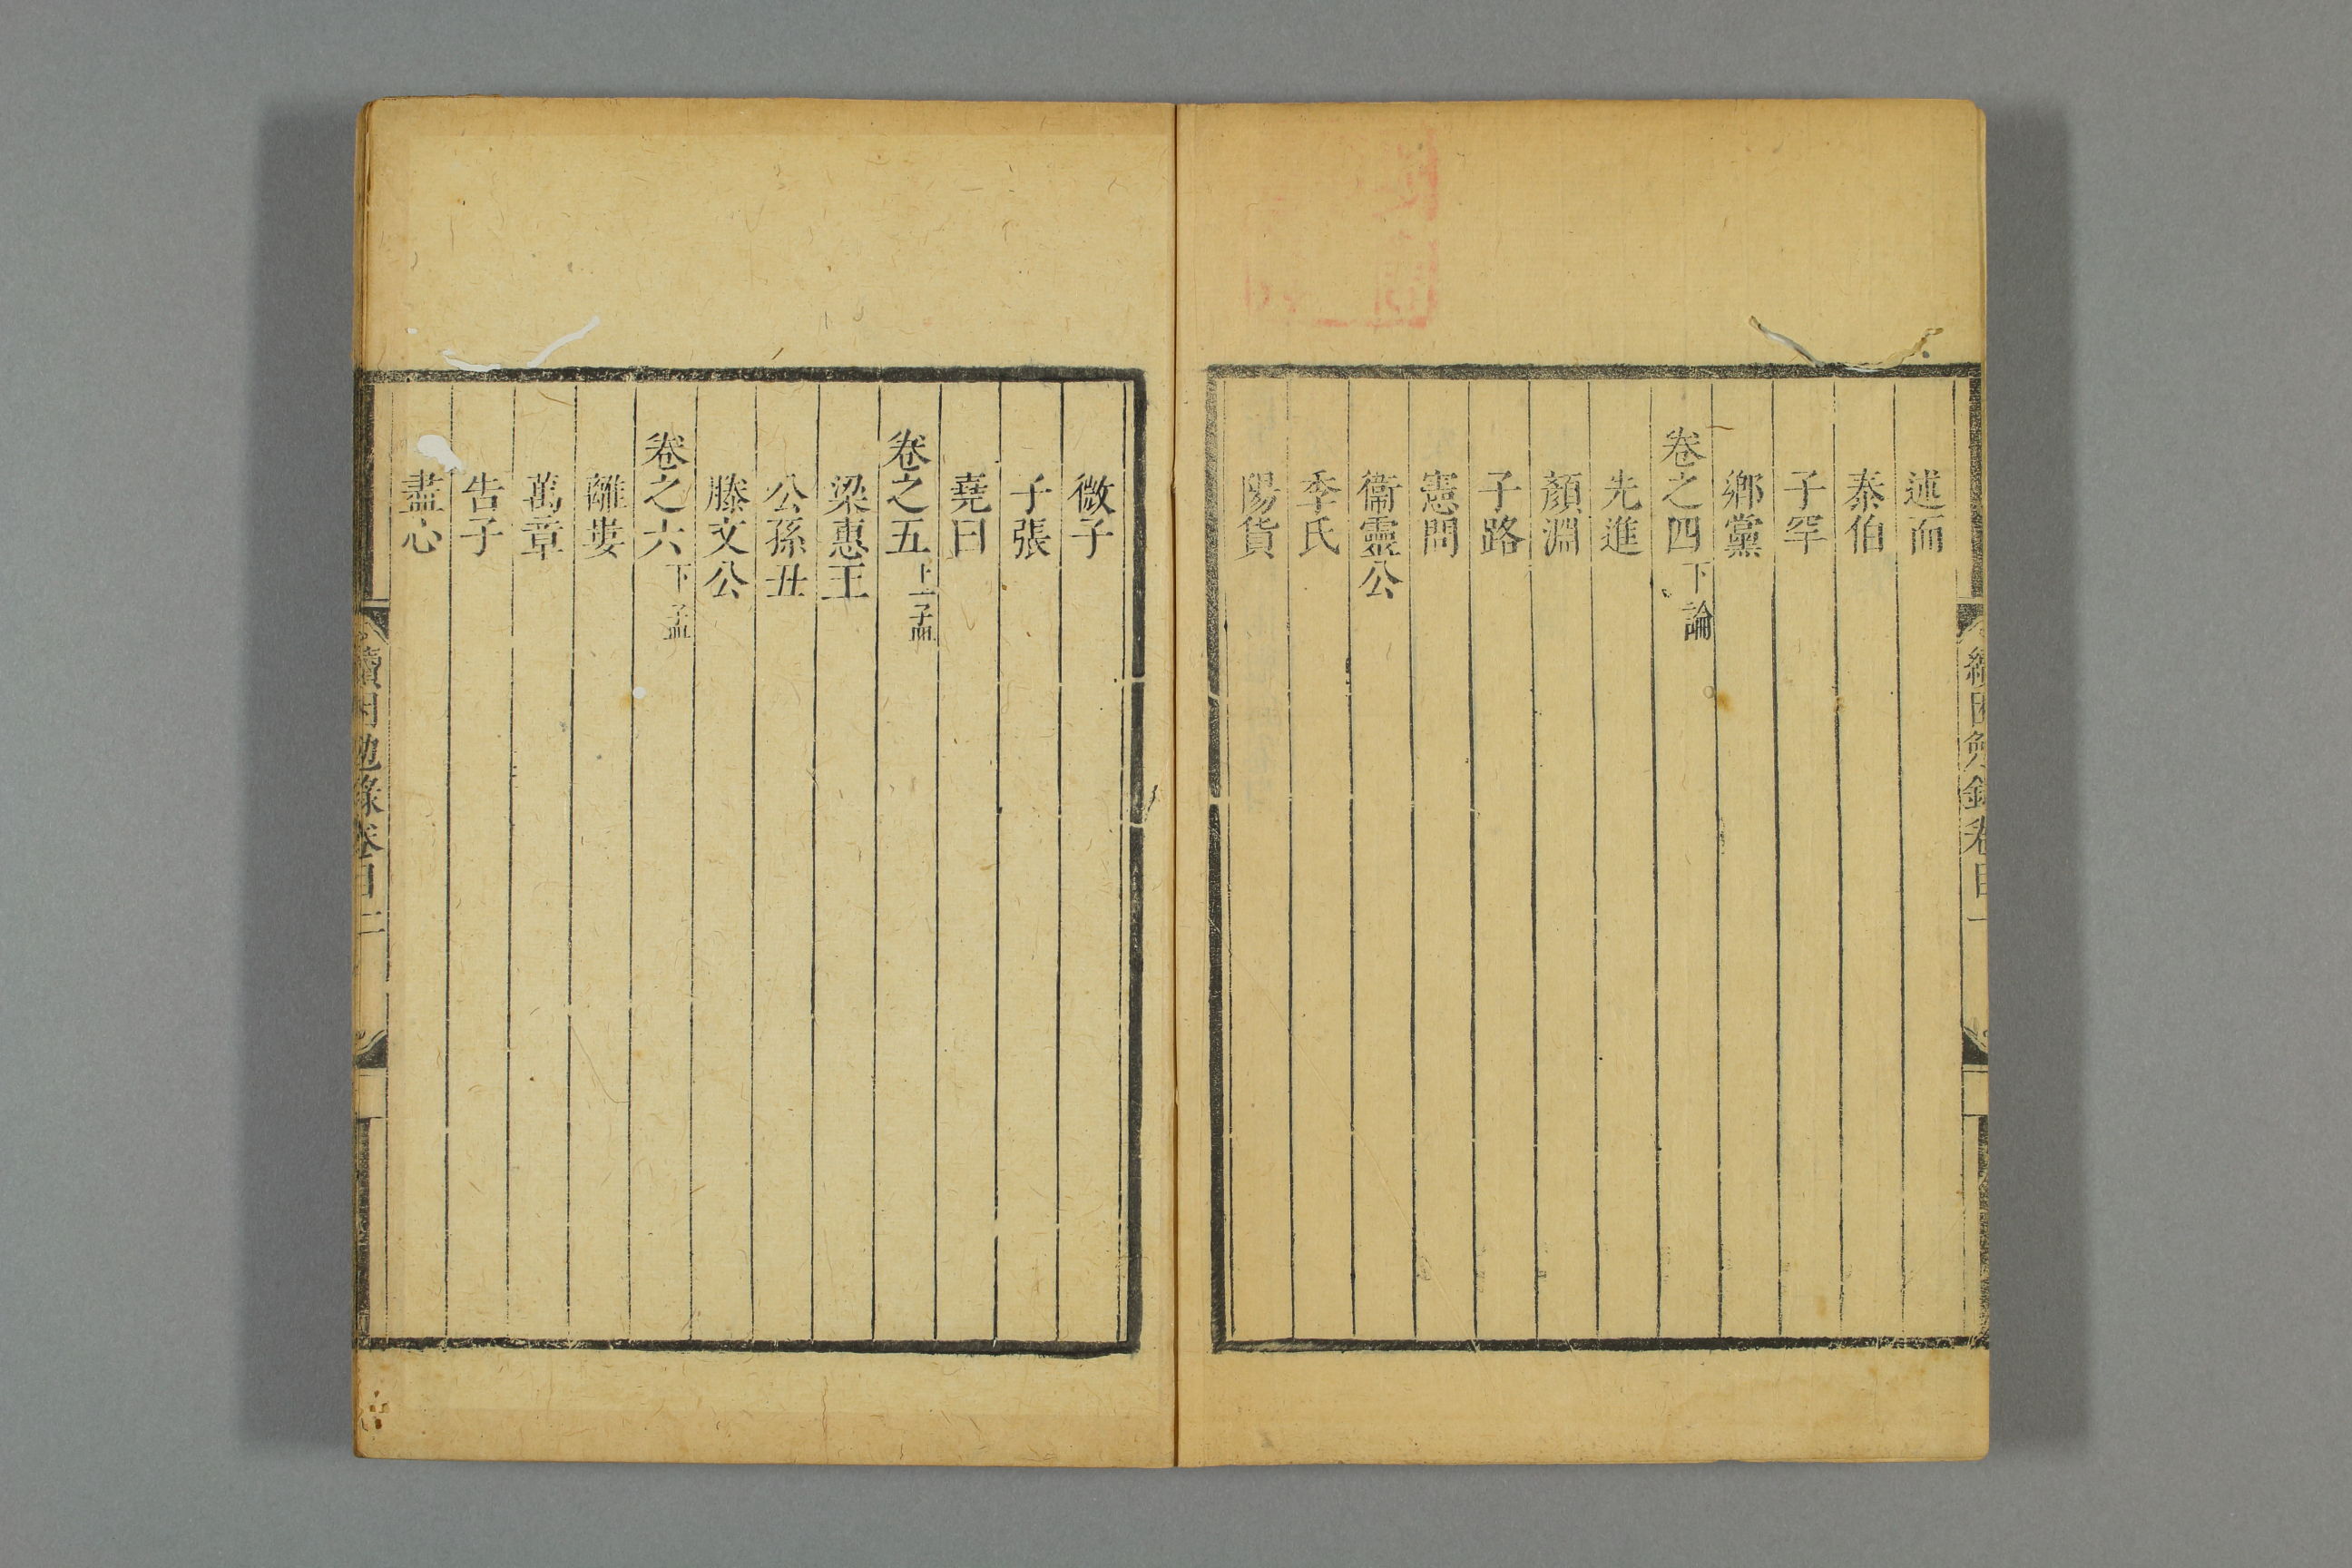 續困勉錄卷目一
述而
泰伯
子罕
鄉黨
卷之四下論
先進
顏淵
子路
憲問
衞靈公
季氏
陽貨
微子
子張
堯曰
卷之五上孟
梁惠王
公孫丑
滕文公
卷之六下孟
離婁
萬章
告子
盡心
續困勉錄卷目二